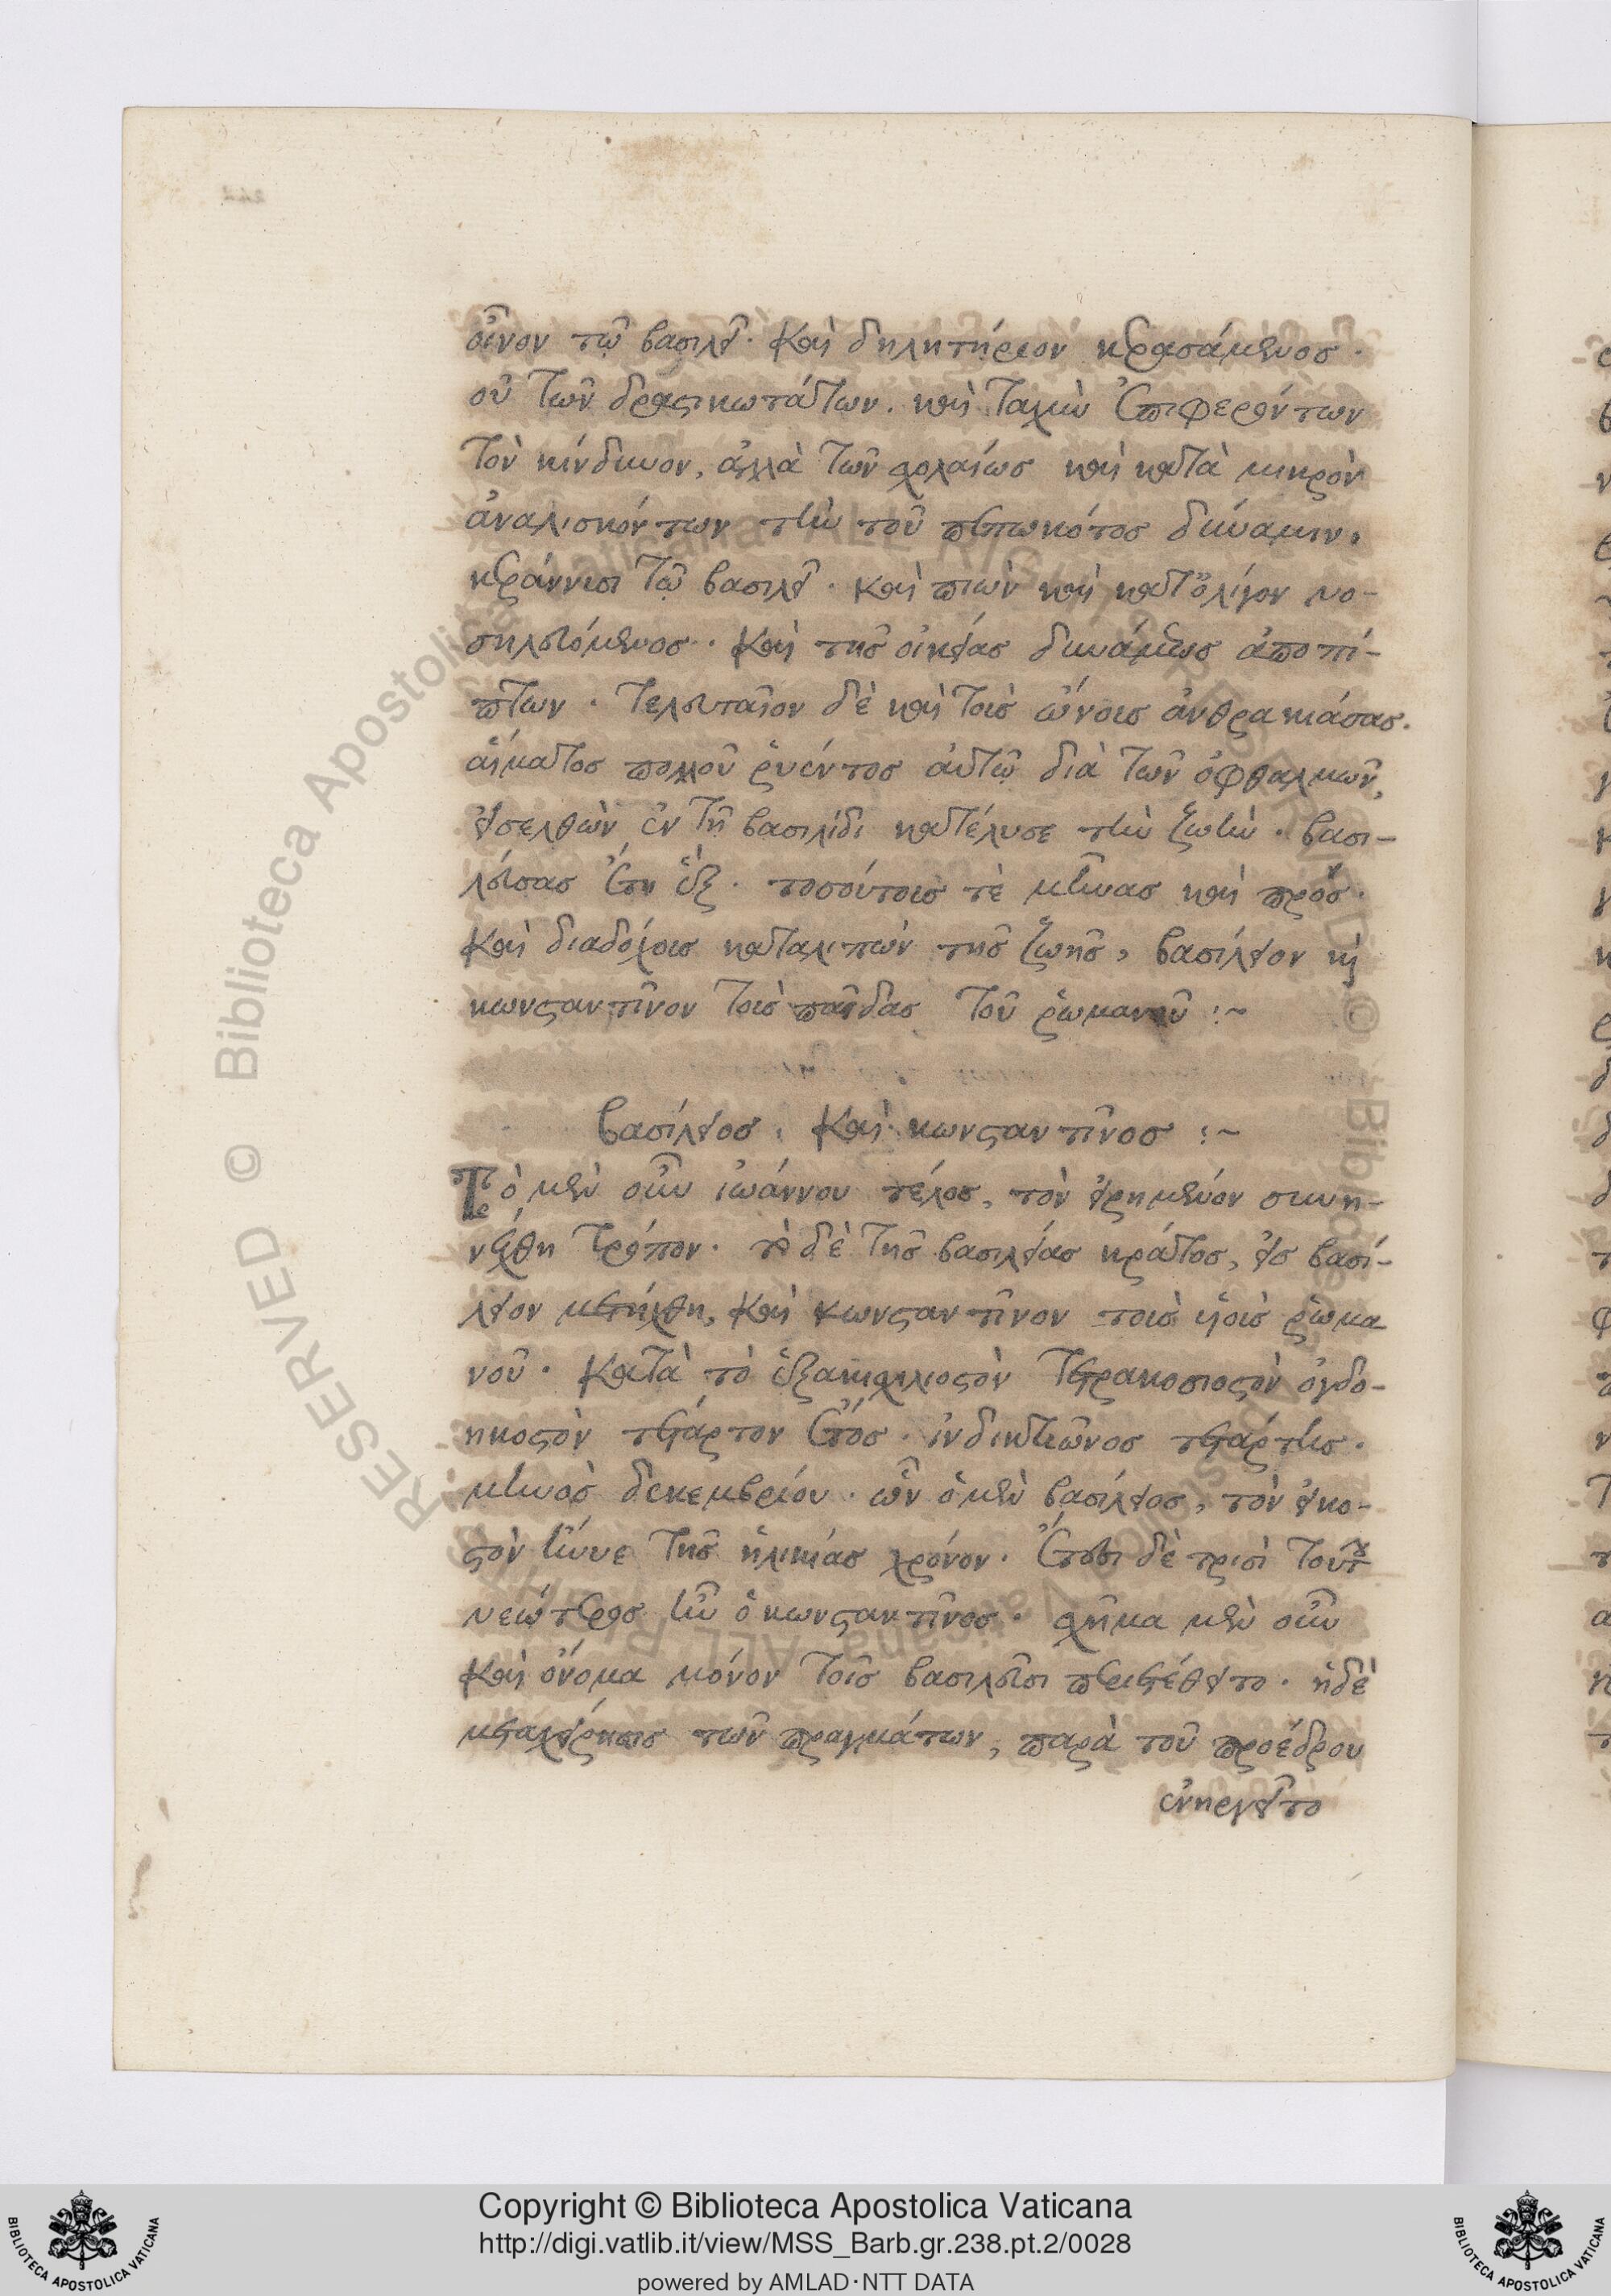 οἶνον τῷ βασιλεῖ. καὶ δηλητήριον κερασάμενος.
οὐ τῶν δραστικωτάτων. καὶ ταχὺ ἐπιφερόντων
τὸν κίνδυνον, ἀλλὰ τῶν σχολαίως καὶ κατὰ μικρὸν
ἀναλισκόντων τὴν τοῦ πεπωκότος δύναμιν,
κεράννυσι τῷ βασιλεῖ. καὶ πιὼν καὶ κατ' ὀλίγον νο-
σηλευόμενος. καὶ τῆς οἰκείας δυνάμεως ἀποπί-
πτων. τελευταῖον δὲ καὶ τοὺς ὤμους ἀνθρακιάσας.
αἵματος πολλοῦ ῥυέντος αὐτῷ διὰ τῶν ὀφθαλμῶν,
εἰσελθὼν ἐν τῇ βασιλίδι κατέλυσε τὴν ζωὴν. βασι-
λεύσας ἔτη ἓξ. τοσούτους τὲ μῆνας καὶ πρός.
καὶ διαδόχους καταλιπὼν τῆς ζωῆς, βασίλειον καὶ
κωνσταντῖνον τοὺς παῖδας τοῦ ῥωμανοῦ :~
βασίλειος. καὶ κωνσταντῖνος :~
Τὸ μὲν οὖν ἰωάννου τέλος, τὸν εἰρημένον συνη-
νέχθη τρόπον. τὸ δὲ τῆς βασιλείας κράτος, εἰς βασί-
λειον μετήχθη, καὶ κωνσταντῖνον τοὺς υἱοὺς ῥωμα
νοῦ. κατὰ τὸ ἑξακισχιλιοστὸν τετρακοσιοστὸν ὀγδο-
ηκοστὸν τέταρτον ἔτος. ἰνδικτιῶνος τετάρτης.
μηνὸς δεκεμβρίου. ὧν ὁ μὲν βασίλειος, τὸν εἰκο-
στὸν ἤνυε τῆς ἡλικίας χρόνον. ἔτεσι δὲ τρισὶ τούτου
νεώτερος ἦν ὁ κωνσταντῖνος. σχῆμα μὲν οὖν
καὶ ὄνομα μόνον τοῖς βασιλεῦσι περιετέθειτο. ἡ δὲ
μεταχείρησις τῶν πραγμάτων, παρὰ τοῦ προέδρου
ἐνηργεῖτο
Copyright © Biblioteca Apostolica Vaticana
http://digi.vatlib.it/view/MSS_Barb.gr.238.pt.2/0028
powered by AMLAD·NTT DATA